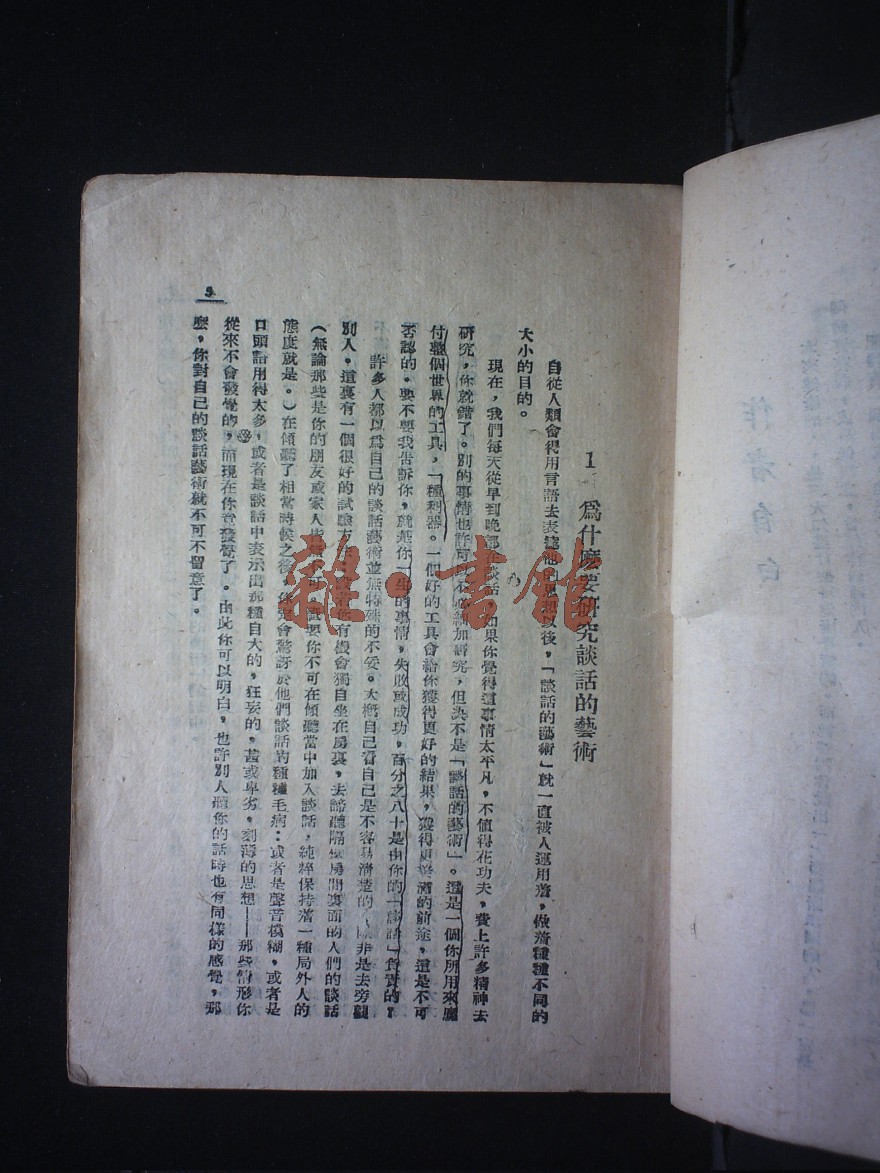 1 爲什麽要研究談話的藝術
自從人類會得用言語去表達他的思想以後,「談話的藝術」就一直被人運用着,做着種種不同的
大小的目的。
現在,我們每天從早到晚都在談話,如果你覺得這事情太平凡,不值得花功夫,費上許多精神去
研究,你就錯了。別的事情也許可以不必細加研究,但決不是「談話的藝術」。這是一個你所用來應
付整個世界的工具,一種利器。一個好的工具會給你獲得更好的結果,獲得更美滿的前途,這是不可
否認的。要不要我告訴你,就是你一生的事情,失敗或成功,百分之八十是由你的「談話」負責的?
許多人都以爲自己的談話藝術並無特殊的不妥。大概自己看自己是不容易清楚的,除非是去旁觀
別人。這裏有一個很好的試驗方法:或者你有機會獨自坐在房裏,去諦聽隔壁房間裏面的人們的談話
(無論那些是你的朋友或家人皆無不可。祗要你不可在傾聽當中加入談話,純粹保持着一種局外人的
態度就是。)在傾聽了相當時候之後,你定會驚訝於他們談話的種種毛病:或者是聲音模糊,或者是
口頭語用得太多,或者是談話中表示出那種自大的,狂妄的,甚或卑劣,刻薄的思想——那些情形你
從來不會發覺的,而現在你竟發覺了。由此你可以明白,也許別人聽你的話時也有同樣的感覺,那
麽,你對自己的談話藝術就不可不留意了。
作者自白
雜·書館